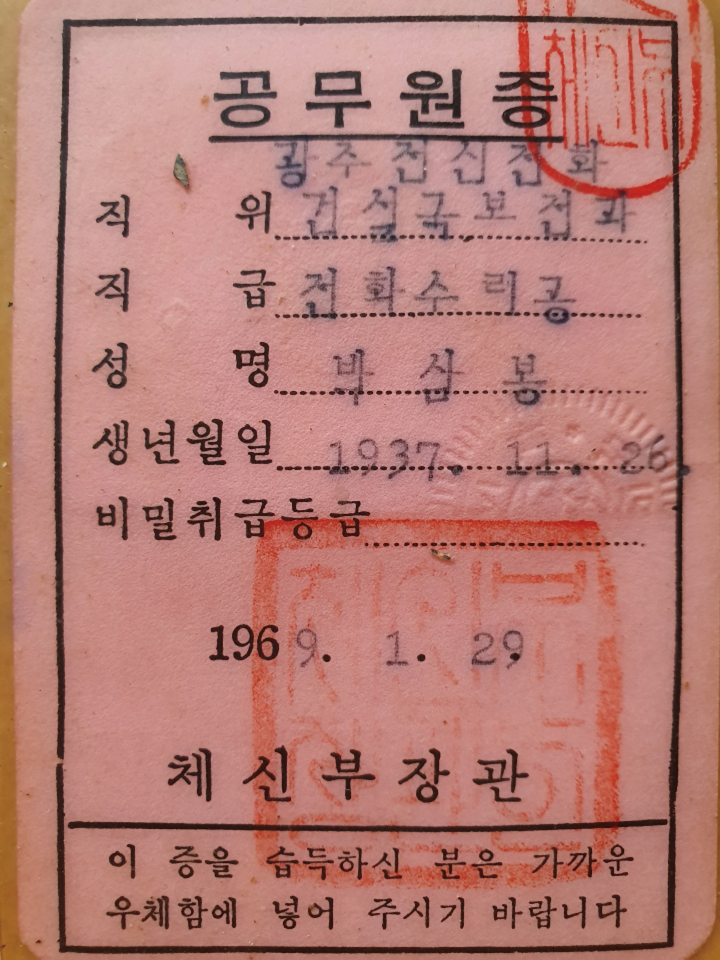 공무원증
광주전신전화
직 위 건설국보전과
직 급 전화수리공
성 명 박삼봉
생년월일 1937. 11. 26.
비밀취급등급
1969. 1. 29
체신부장관
이 증을 습득하신 분은 가까운
우체함에 넣어 주시기 바랍니다